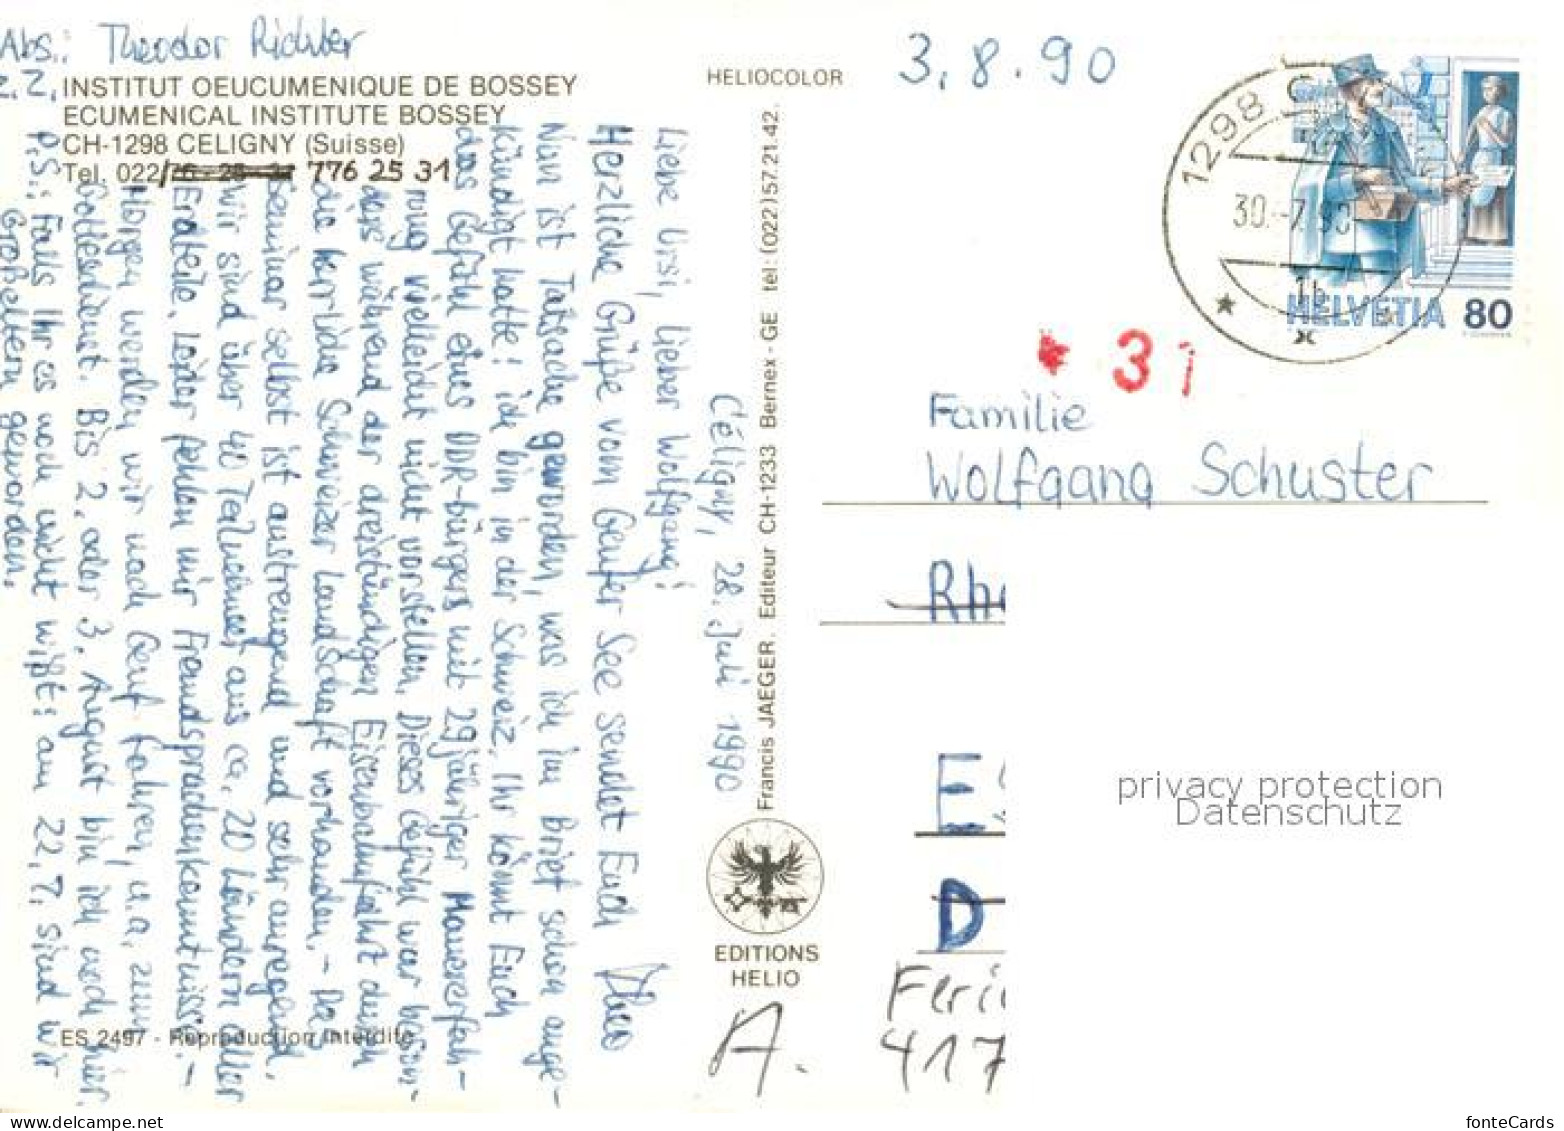 Abs.: Theodor Richter
z. Z.
INSTITUT OEUCUMENIQUE DE BOSSEY
ECUMENICAL INSTITUTE BOSSEY
CH-1298 CELIGNY (Suisse)
Tel. 022/76 - 25 - 31 776 25 31
Céligny, 28. Juli 1990
Liebe Ursi, lieber Wolfgang!
Herzliche Grüße vom Genfer See sendet Euch Theo
Nun ist Tatsache geworden, was ich im Brief schon ange-
kündigt hatte! ich bin in der Schweiz. Ihr könnt Euch
das Gefühl eines DDR-bürgers mit 29jähriger Mauererfah-
rung vielleicht nicht vorstellen. Dieses Gefühl war beson-
ders während der dreistündigen Eisenbahnfahrt durch
die herrliche Schweizer Landschaft vorhanden. - Das
Seminar selbst ist anstrengend und sehr anregend.
Wir sind über 40 Teilnehmer aus ca. 20 Ländern aller
Erdteile. Leider fehlen mir Fremdsprachenkenntnisse. -
Morgen werden wir nach Genf fahren, u.a. zum
Gottesdienst. Bis 2. oder 3. August bin ich noch hier.
P.S.: Falls Ihr es noch nicht wißt: am 22.7. sind wir
Großeltern geworden.
ES 2497 - Reproduction interdite
HELIOCOLOR
Francis JAEGER. Editeur CH-1233 Bernex - GE tél: (022) 57.21.42.
EDITIONS
HELIO
A.
3.8.90
1298
30.-7.90
HELVETIA 80
* 31
Familie
Wolfgang Schuster
D
417
privacy protection
Datenschutz
www.ansichtskarten-center.de
fonteCards